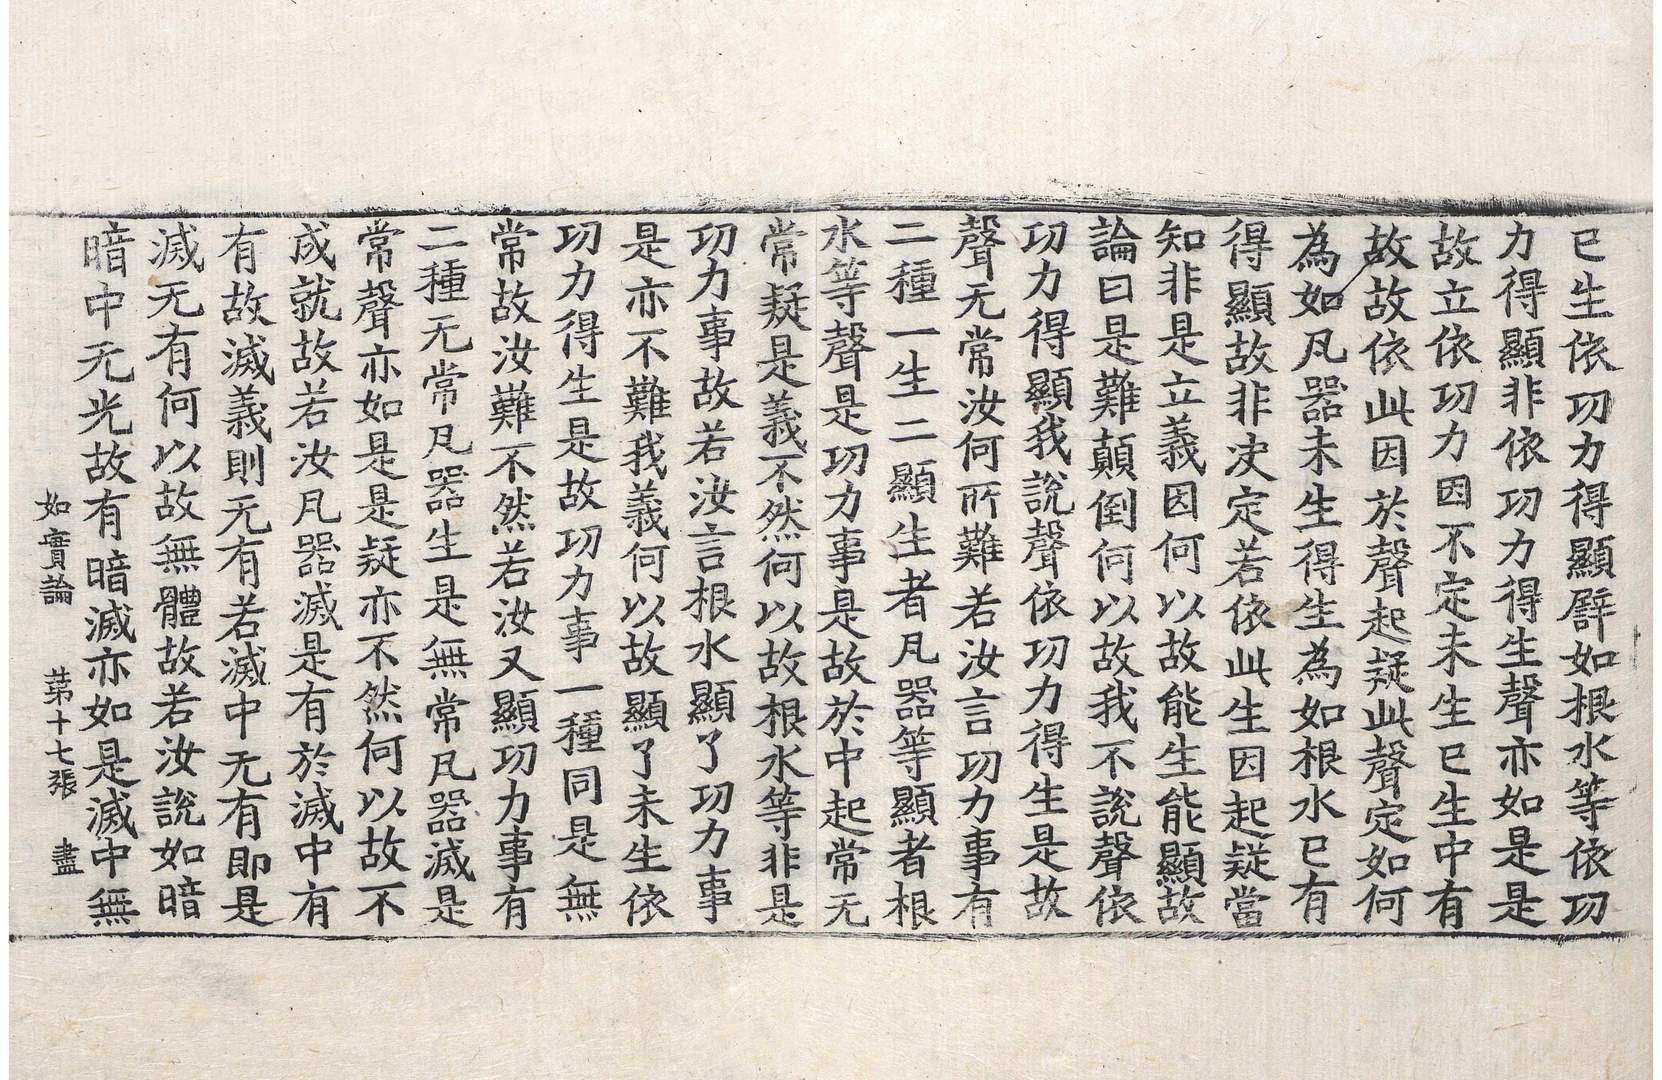 已生依功力得顯譬如根水等依功
力得顯非依功力得生聲亦如是是
故立依功力因不定未生已生中有
故故依此因於聲起疑此聲定如何
為如凡器未生得生為如根水已有
得顯故非决定若依此生因起疑當
知非是立義因何以故能生能顯故
論曰是難顛倒何以故我不說聲依
功力得顯我說聲依功力得生是故
聲无常汝何所難若汝言功力事有
二種一生二顯生者凡器等顯者根
水等聲是功力事是故於中起常无
常疑是義不然何以故根水等非是
功力事故若汝言根水顯了功力事
是亦不難我義何以故顯了未生依
功力得生是故功力事一種同是無
常故汝難不然若汝又顯功力事有
二種无常凡器生是無常凡器滅是
常聲亦如是是疑亦不然何以故不
成就故若汝凡器滅是有於滅中有
有故滅義則无有若滅中无有即是
滅无有何以故無體故若汝說如暗
暗中无光故有暗滅亦如是滅中無
如實論 苐十七張 盡